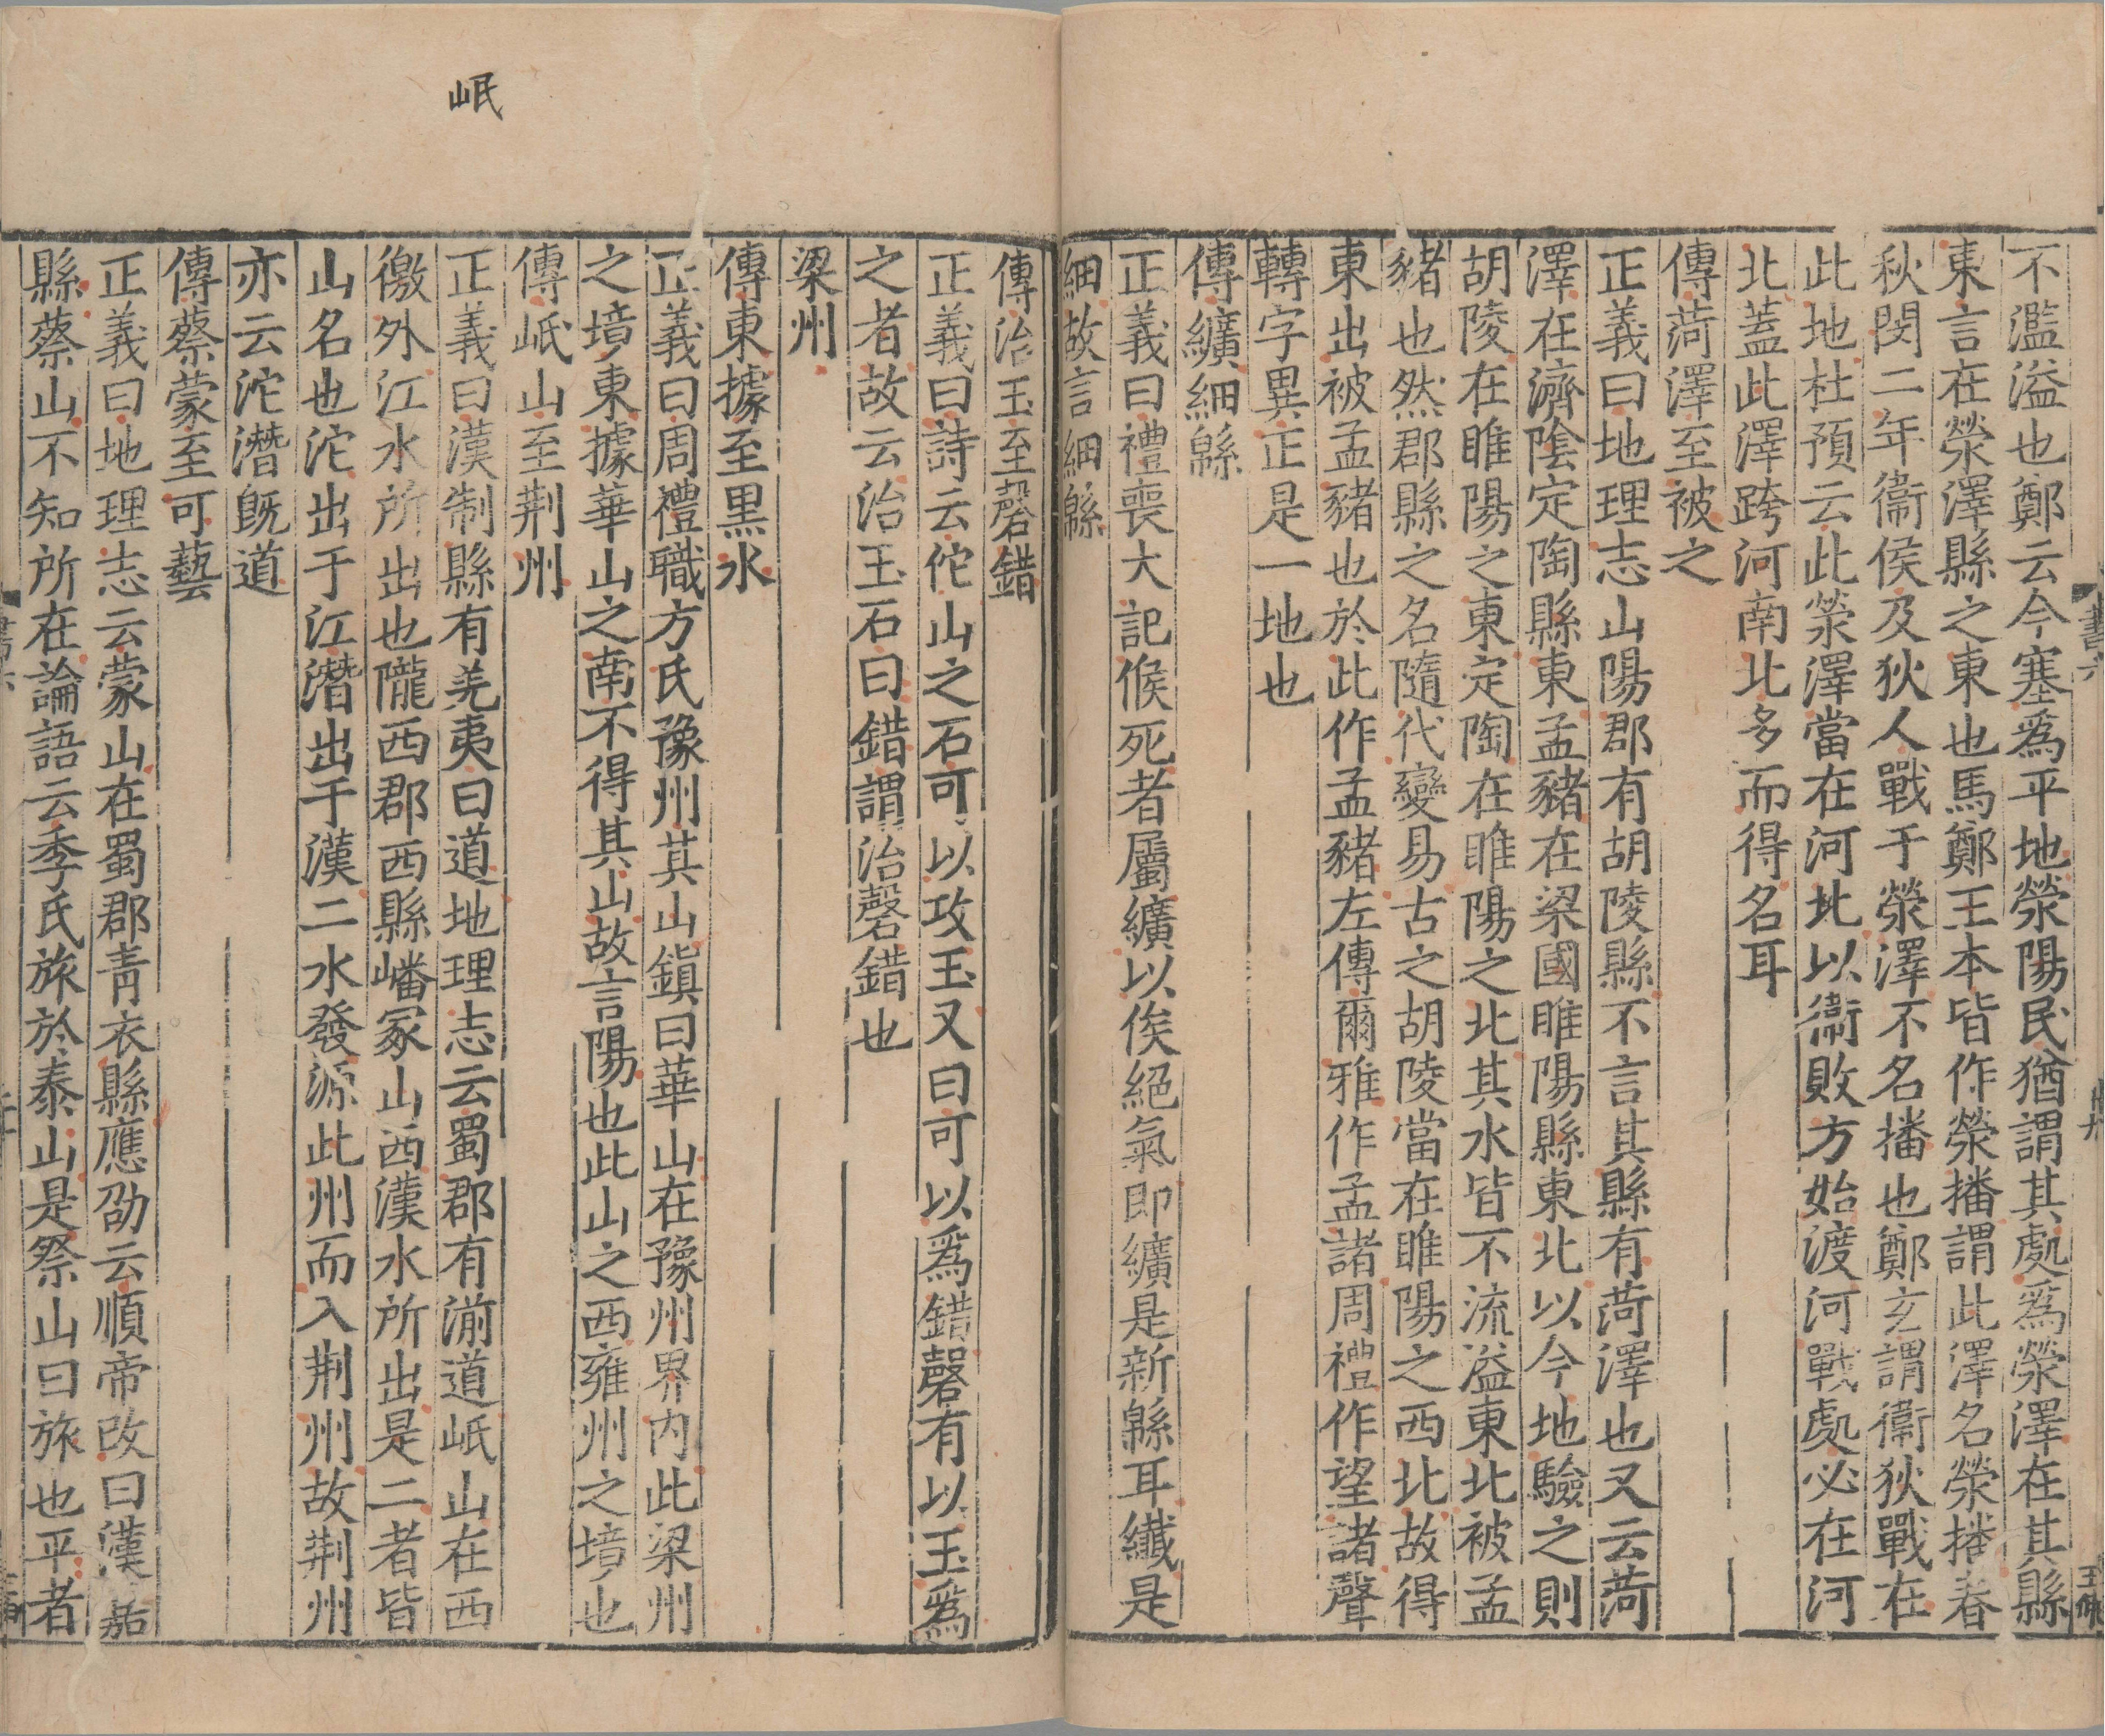 不濫溢也鄭云今塞爲平地滎陽民猶謂其處爲滎澤在其縣
東言在滎澤縣之東也馬鄭王本皆作滎播謂此澤名滎播春
秋閔二年衞侯及狄人戰于滎澤不名播也鄭玄謂衞狄戰在
此地杜預云此滎澤當在河北以衞敗方始渡河戰處必在河
北蓋此澤跨河南北多而得名耳
傳菏澤至被之
正義曰地理志山陽郡有胡陵縣不言其縣有菏澤也又云菏
澤在濟陰定陶縣東孟豬在梁國睢陽縣東北以今地驗之則
胡陵在睢陽之東定陶在睢陽之北其水皆不流溢東北被孟
豬也然郡縣之名隨代變易古之胡陵當在睢陽之西北故得
東出被孟豬也於此作孟豬左傳爾雅作孟諸周禮作望諸聲
轉字異正是一地也
傳纊細緜
正義曰禮喪大記候死者屬纊以俟絕氣即纊是新緜耳纖是
細故言細緜
傳治玉至磬錯
正義曰詩云佗山之石可以攻玉又曰可以爲錯磬有以玉爲
之者故云治玉石曰錯謂治磬錯也
梁州
傳東據至黑水
正義曰周禮職方氏豫州其山鎮曰華山在豫州界内此梁州
之境東據華山之南不得其山故言陽也此山之西雍州之境也
傳岷山至荆州
岷
正義曰漢制縣有羌夷曰道地理志云蜀郡有湔道岷山在西
徼外江水所出也隴西郡西縣嶓冢山西漢水所出是二者皆
山名也沱出于江潛出于漢二水發源此州而入荆州故荆州
亦云沱潛旣道
傳蔡蒙至可藝
正義曰地理志云蒙山在蜀郡青衣縣應劭云順帝改曰漢嘉
縣蔡山不知所在論語云季氏旅於泰山是祭山曰旅也平者